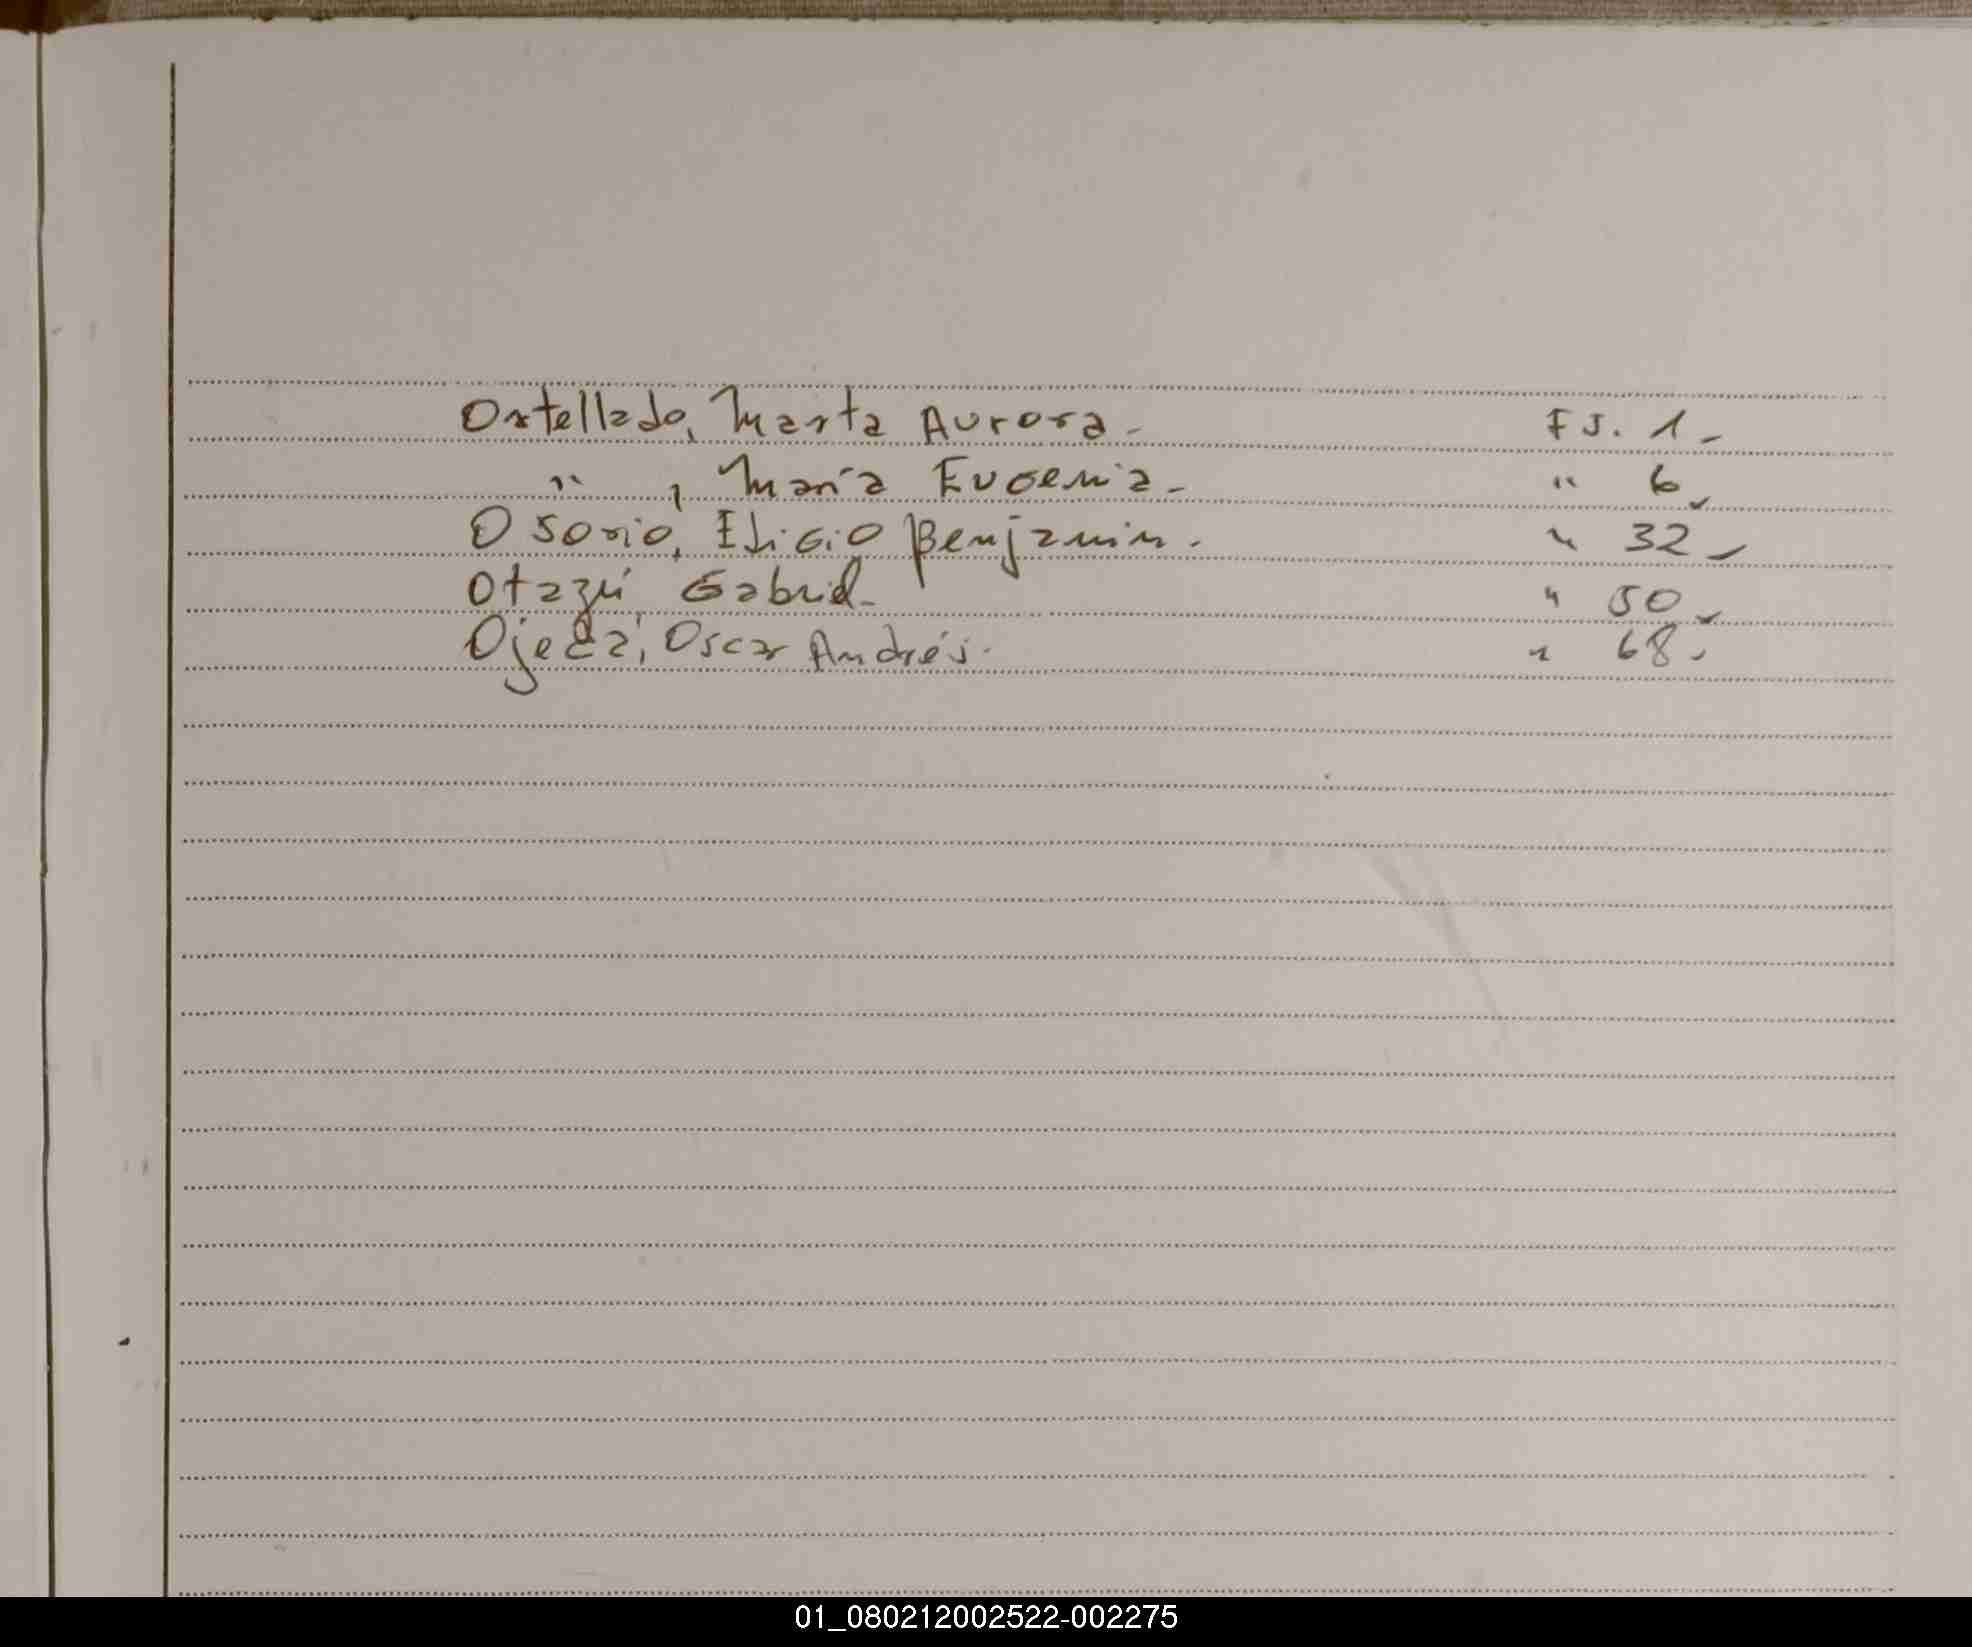 Ortellado, Marta Aurora.- Fs. 1.-
" , María Eugenia.- " 6.-
Osorio, Eligio Benjamin.- " 32.-
Otazú, Gabriel.- " 50.-
Ojeda, Oscar Andrés.- " 68.-
01_080212002522-002275